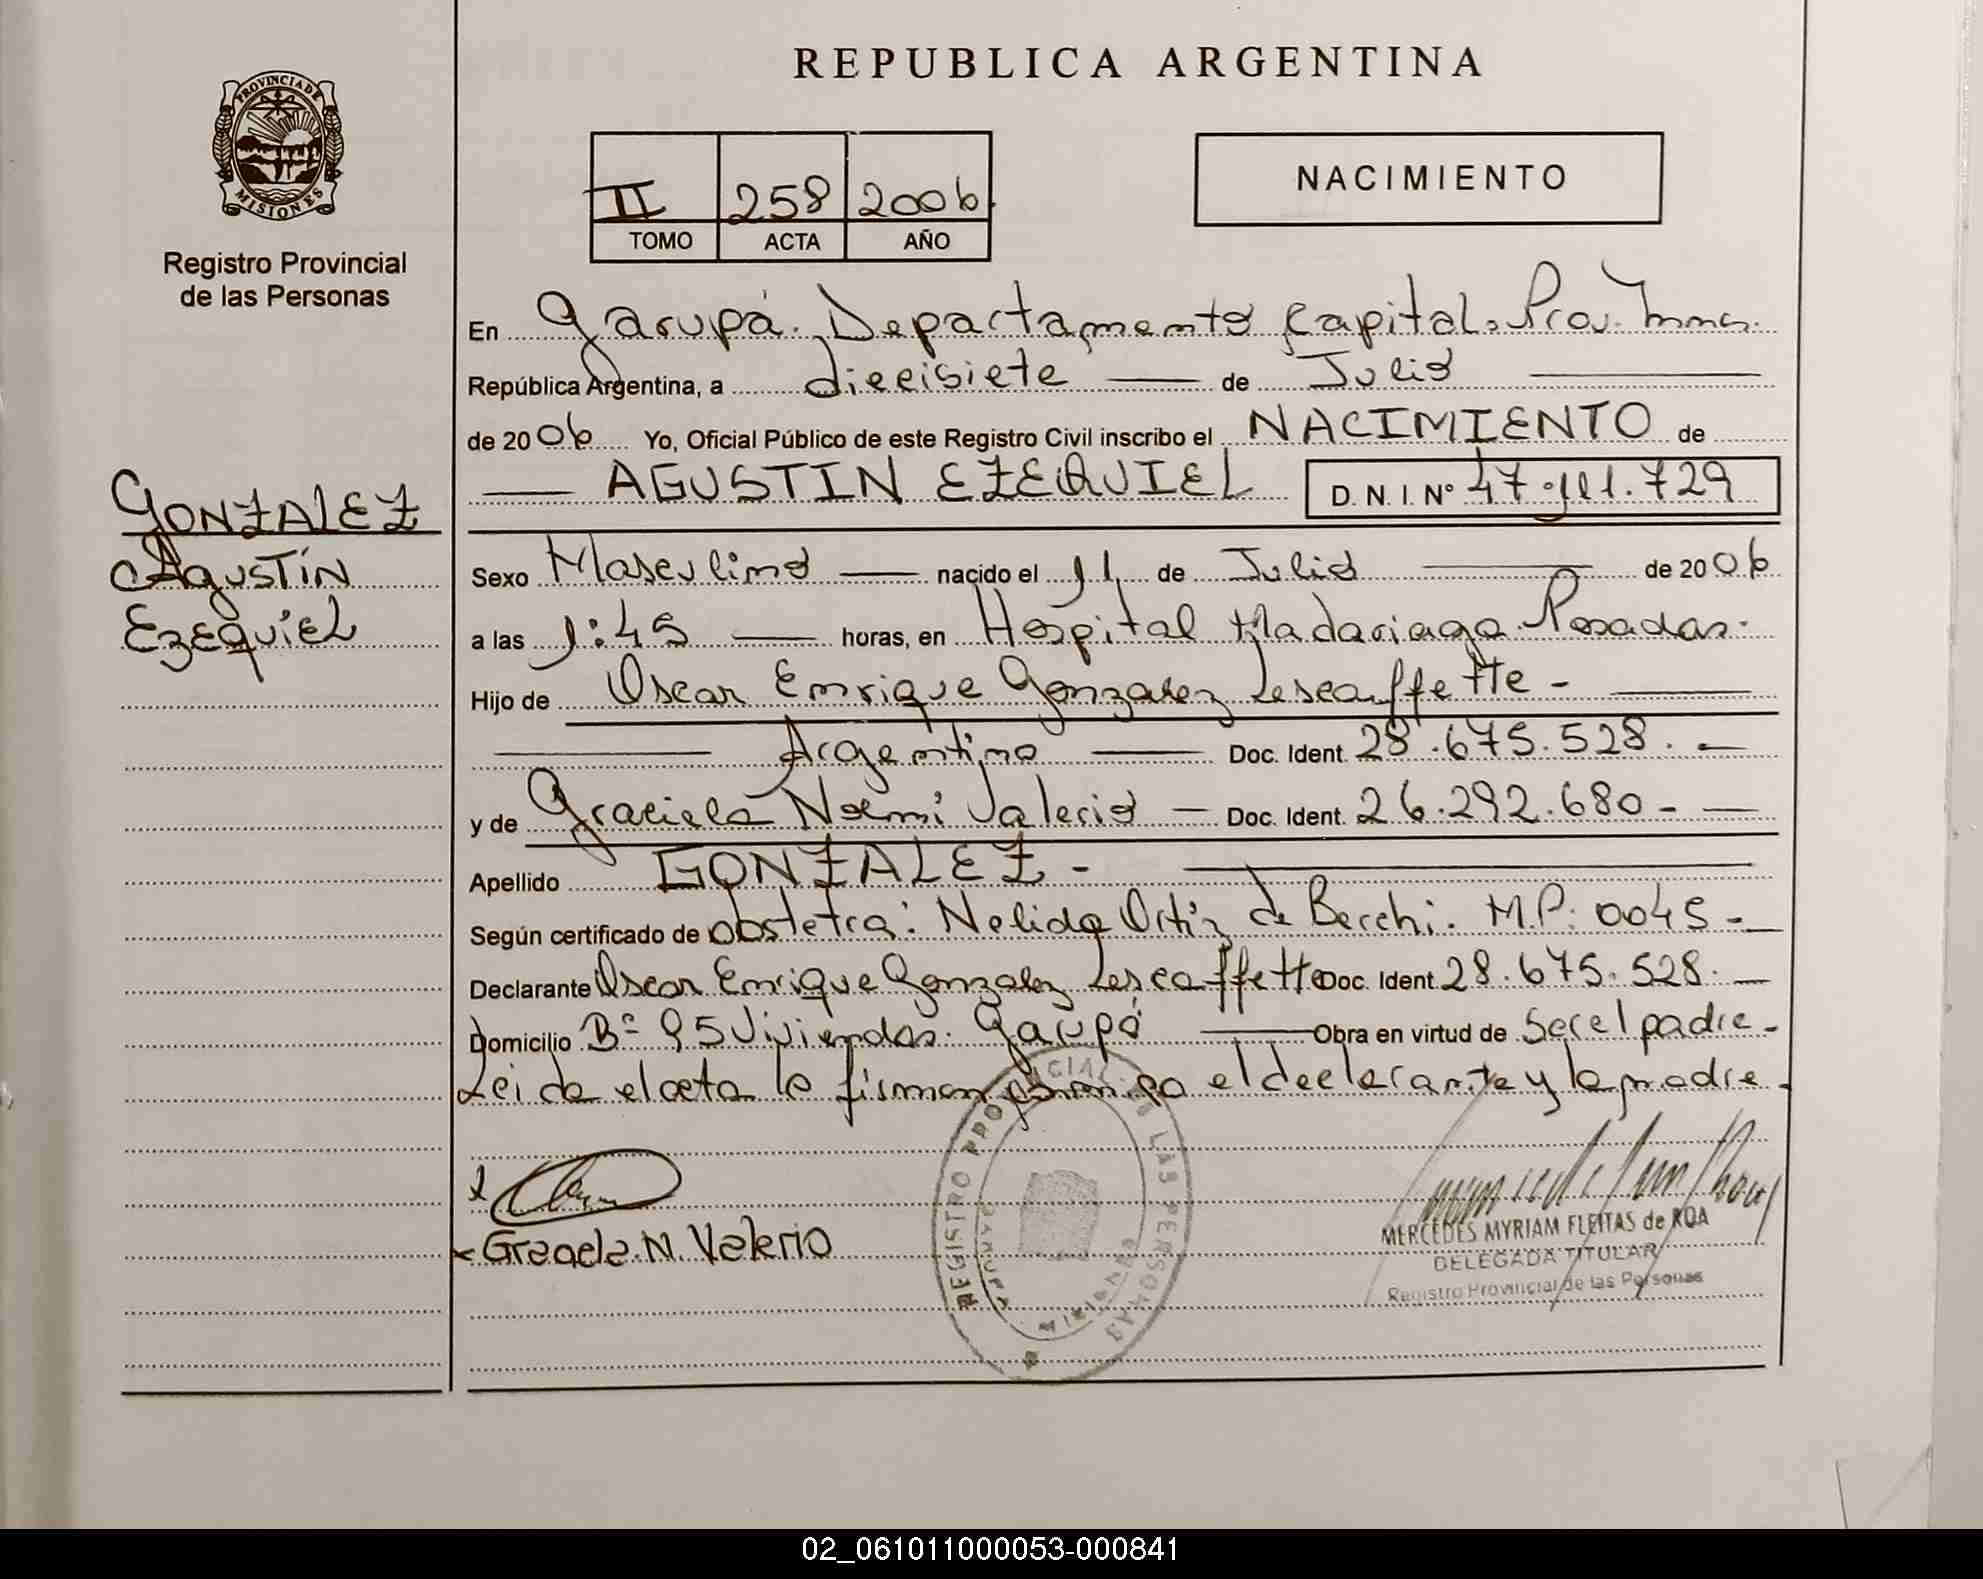 REPUBLICA ARGENTINA
PROVINCIA DE MISIONES
Registro Provincial
de las Personas
II 258 2006
TOMO ACTA AÑO
NACIMIENTO
En Garupá. Departamento Capital. Prov. Mnes.
República Argentina, a diecisiete de Julio
de 2006 Yo, Oficial Público de este Registro Civil inscribo el NACIMIENTO de
AGUSTIN EZEQUIEL D. N. I. Nº 47.111.729
GONZALEZ
Agustín
Ezequiel
Sexo Masculino nacido el 11 de Julio de 2006
a las 1:45 horas, en Hospital Madariaga Posadas.
Hijo de Oscar Enrique Gonzalez Lescauffette -
Argentino Doc. Ident. 28.675.528. -
y de Graciela Noemí Valerio - Doc. Ident. 26.292.680 - -
Apellido GONZALEZ -
Según certificado de obstetra: Nelida Ortiz de Berchi. M.P: 0045 -
Declarante Oscar Enrique Gonzalez Lescaffette Doc. Ident. 28.675.528. -
Domicilio Bº 95 Viviendas. Garupá Obra en virtud de Ser el padre -
Leida el acta la firman conmigo el declarante y la madre.
x
x Graciela N. Valerio
REGISTRO PROVINCIAL DE LAS PERSONAS
GARUPA
MISIONES
MERCEDES MYRIAM FLEITAS de ROA
DELEGADA TITULAR
Registro Provincial de las Personas
02_061011000053-000841